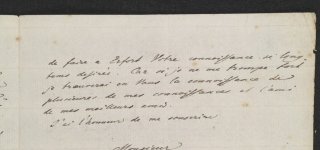 de faire a Erfort Votre connoissance si long
tems desirée. Car si je ne me trompe fort
je trouverai en Vous la connoissance de
plusieurs de mes connoissances et l'ami
de mes meilleurs amis.
J'ai l'honneur de me souscrire
Monsieur